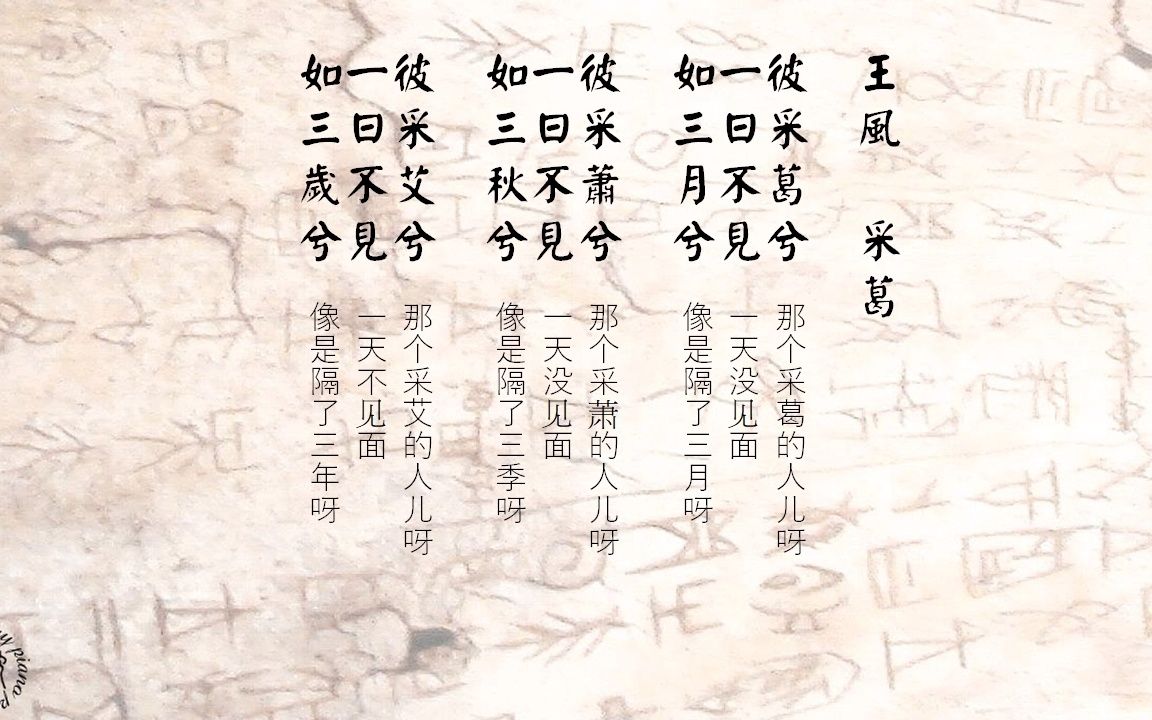 王風 采葛
彼采葛兮
一日不見
如三月兮
那个采葛的人儿呀
一天没见面
像是隔了三月呀
彼采蕭兮
一日不見
如三秋兮
那个采萧的人儿呀
一天没见面
像是隔了三季呀
彼采艾兮
一日不見
如三歲兮
那个采艾的人儿呀
一天不见面
像是隔了三年呀
piano